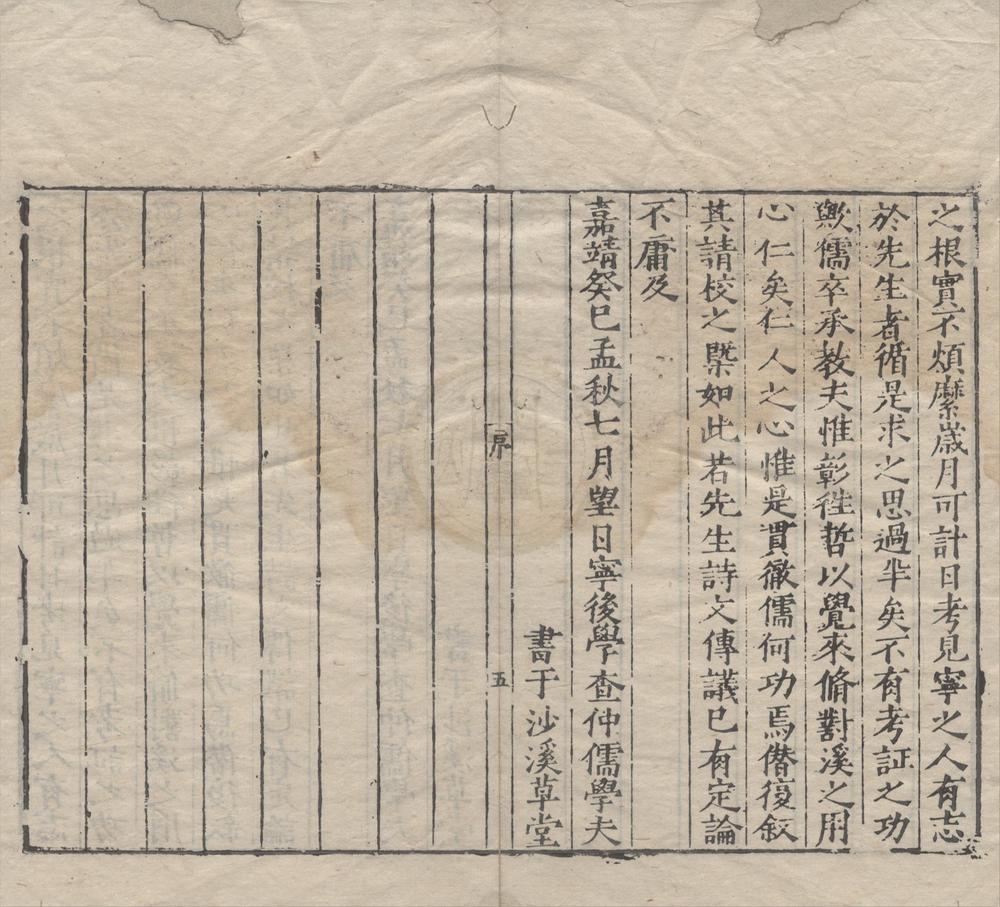 之根實不煩縻歲月可計日考見寧之人有志
於先生者循是求之思過半矣不有考証之功
歟儒卒承教夫惟彰徃哲以覺來脩對溪之用
心仁矣仁人之心惟是貫徹儒何功焉僭復叙
其請校之槩如此若先生詩文傳議已有定論
不庸及
嘉靖癸巳孟秋七月望日寧後學查仲儒學夫
書于沙溪草堂
序
五